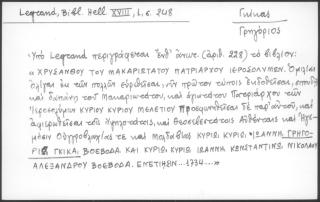 Legrand, Bibl. Hell. XVIII, I, σ. 248
Γκίκας
Γρηγόριος
Ὑπὸ Legrand περιγράφεται ἐνθ' ἀνωτ. (ἀριθ. 228) τὸ βιβλίον:
«ΧΡΥΣΑΝΘΟΥ ΤΟΥ ΜΑΚΑΡΙΣΤΑΤΟΥ ΠΑΤΡΙΑΡΧΟΥ ΙΕΡΟΣΟΛΥΜΩΝ. Ὁμιλίαι
ὀλίγαι ἐκ τῶν πολλῶν εὑρεθεῖσαι, νῦν πρῶτον τύποις ἐκδοθεῖσαι,
καὶ δαπάνῃ τοῦ Μακαριωτάτου, καὶ Πατριάρχου τῶν
Ἱεροσολύμων ΚΥΡΙΟΥ ΚΥΡΙΟΥ ΜΕΛΕΤΙΟΥ Προσφωνηθεῖσαι ΤΕ παρ' αὐτοῦ, καὶ
ἀφιερωθεῖσαι τοῖς Ὑψηλοτάτοις, καὶ Θεοσεβεστάτοις Αὐθένταις καὶ Ἡγε-
μόσιν Οὑγγροβλαχίας τε καὶ Μολδαβίας ΚΥΡΙΩ, ΚΥΡΙΩ, ἸΩΑΝΝΗ, ΓΡΗΓΟ-
ΡΙῼ ΓΚΙΚΑ, ΒΟΕΒΟΔΑ. ΚΑΙ ΚΥΡΙΩ, ΚΥΡΙΩ ΙΩΑΝΝΗ ΚΩΝΣΤΑΝΤΙΝΩ ΝΙΚΟΛΑΟΥ
ΑΛΕΞΑΝΔΡΟΥ ΒΟΕΒΟΔΑ. ΕΝΕΤΙΗΣΙΝ... 1734...»